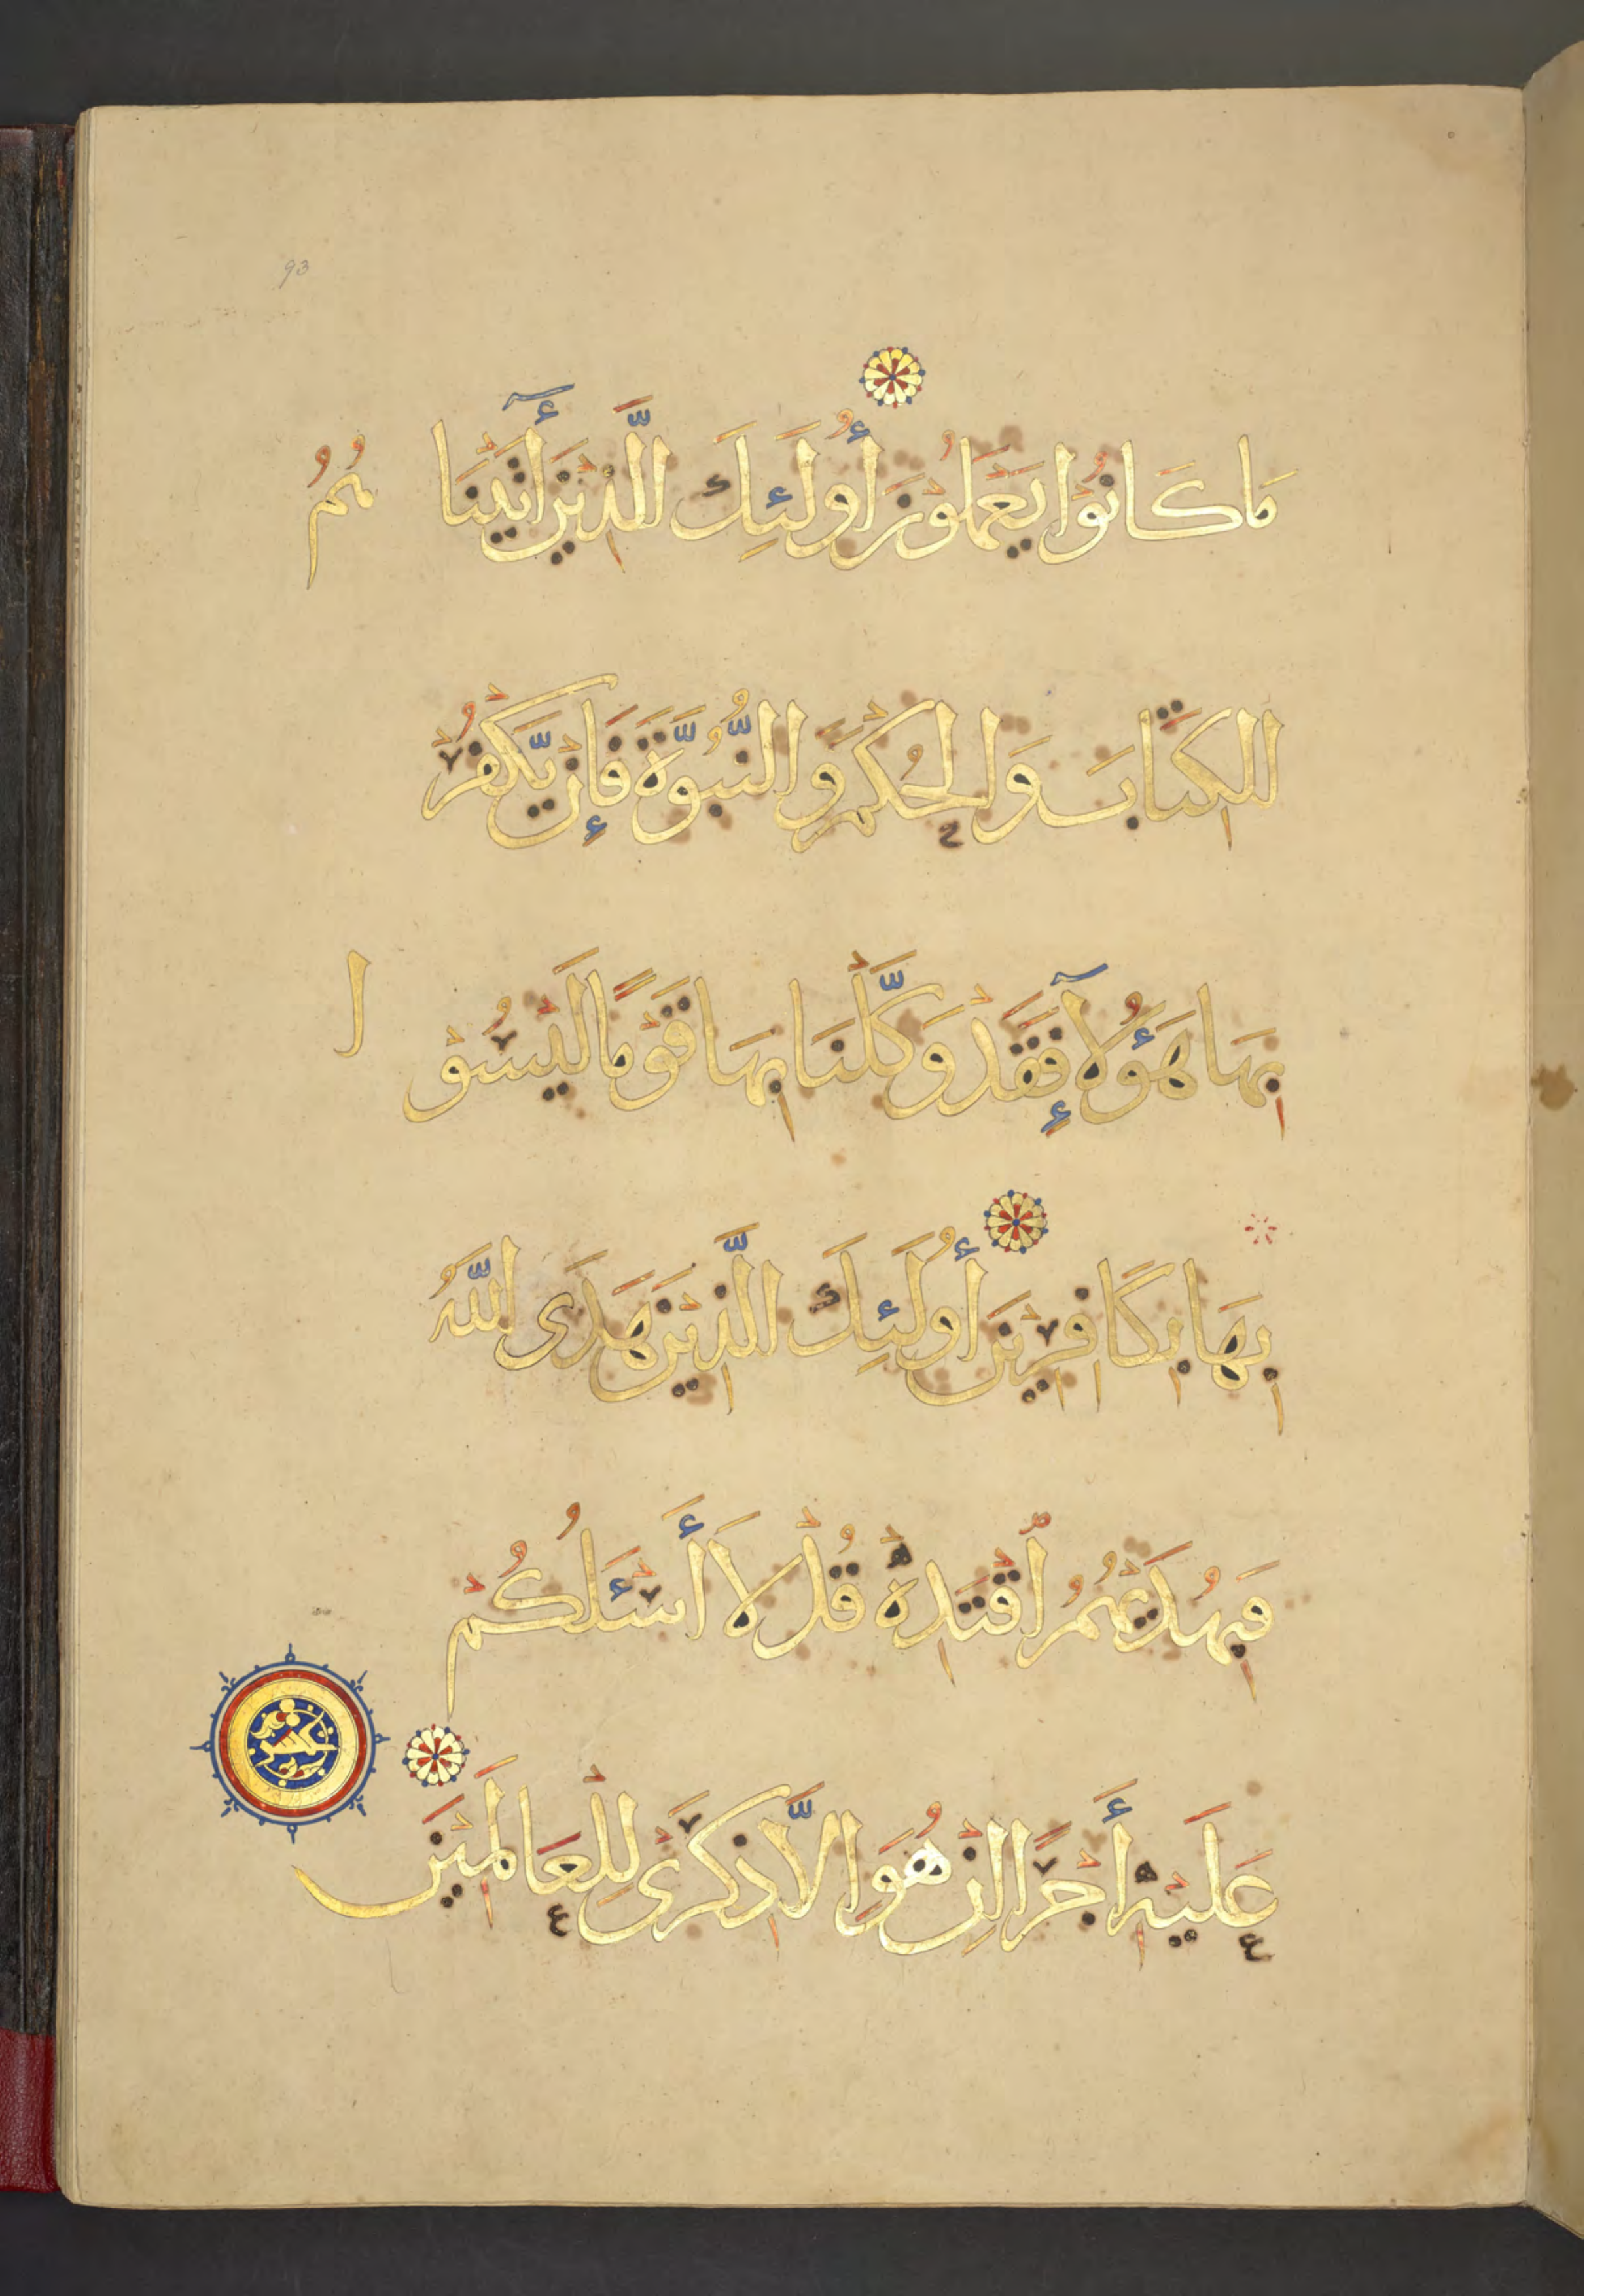 93
مَا كَانُوا يَعْمَلُونَ أُولَئِكَ الَّذِينَ أٓتَيْنَاهُمُ
الْكِتَابَ وَالْحُكْمَ وَالنُّبُوَّةَ فَإِنْ يَّكْفُرْ
بِهَا هَؤُلَآءِ فَقَدْ وَكَّلْنَا بِهَا قَوْمًا لَيْسُوْا
بِهَا بِكَافِرِيْنَ أُولَئِكَ الَّذِيْنَ هَدَى اللَّهُ
فَبِهُدَيهُمُ اقْتَدِهْ قُلْ لَا أَسْئَلُكُمْ
عَلَيْهِ أَجْرًا اِنْ هُوَ اِلَّا ذِكْرَى لِلْعَالَمِيْنَ